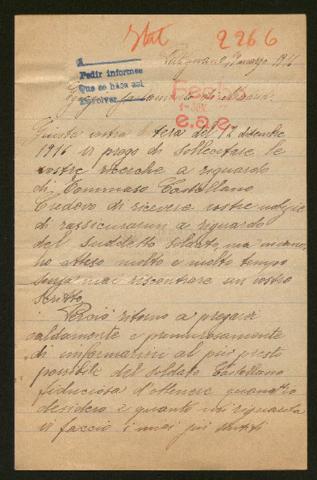 Ital 2266
marzo
Pedir informes
Que se haga así
envolver
e.a.e.
Giusta vostra lettera del 12 dicembre
1916 vi prego di sollecitare le
vostre ricerche a riguardo
di Tommaso Castellano
Credevo di ricevere vostre notizie
di rassicurarmi a riguardo
del suddetto soldato, ma invano,
ho atteso molto e molto tempo
senza mai riscontrare un vostro
scritto.
Perciò ritorno a pregare
caldamente e premurosamente
di informarmi al più presto
possibile del soldato Castellano
fiduciosa d'ottenere quanto
desidero e quanto mi riguarda
vi faccio i miei più